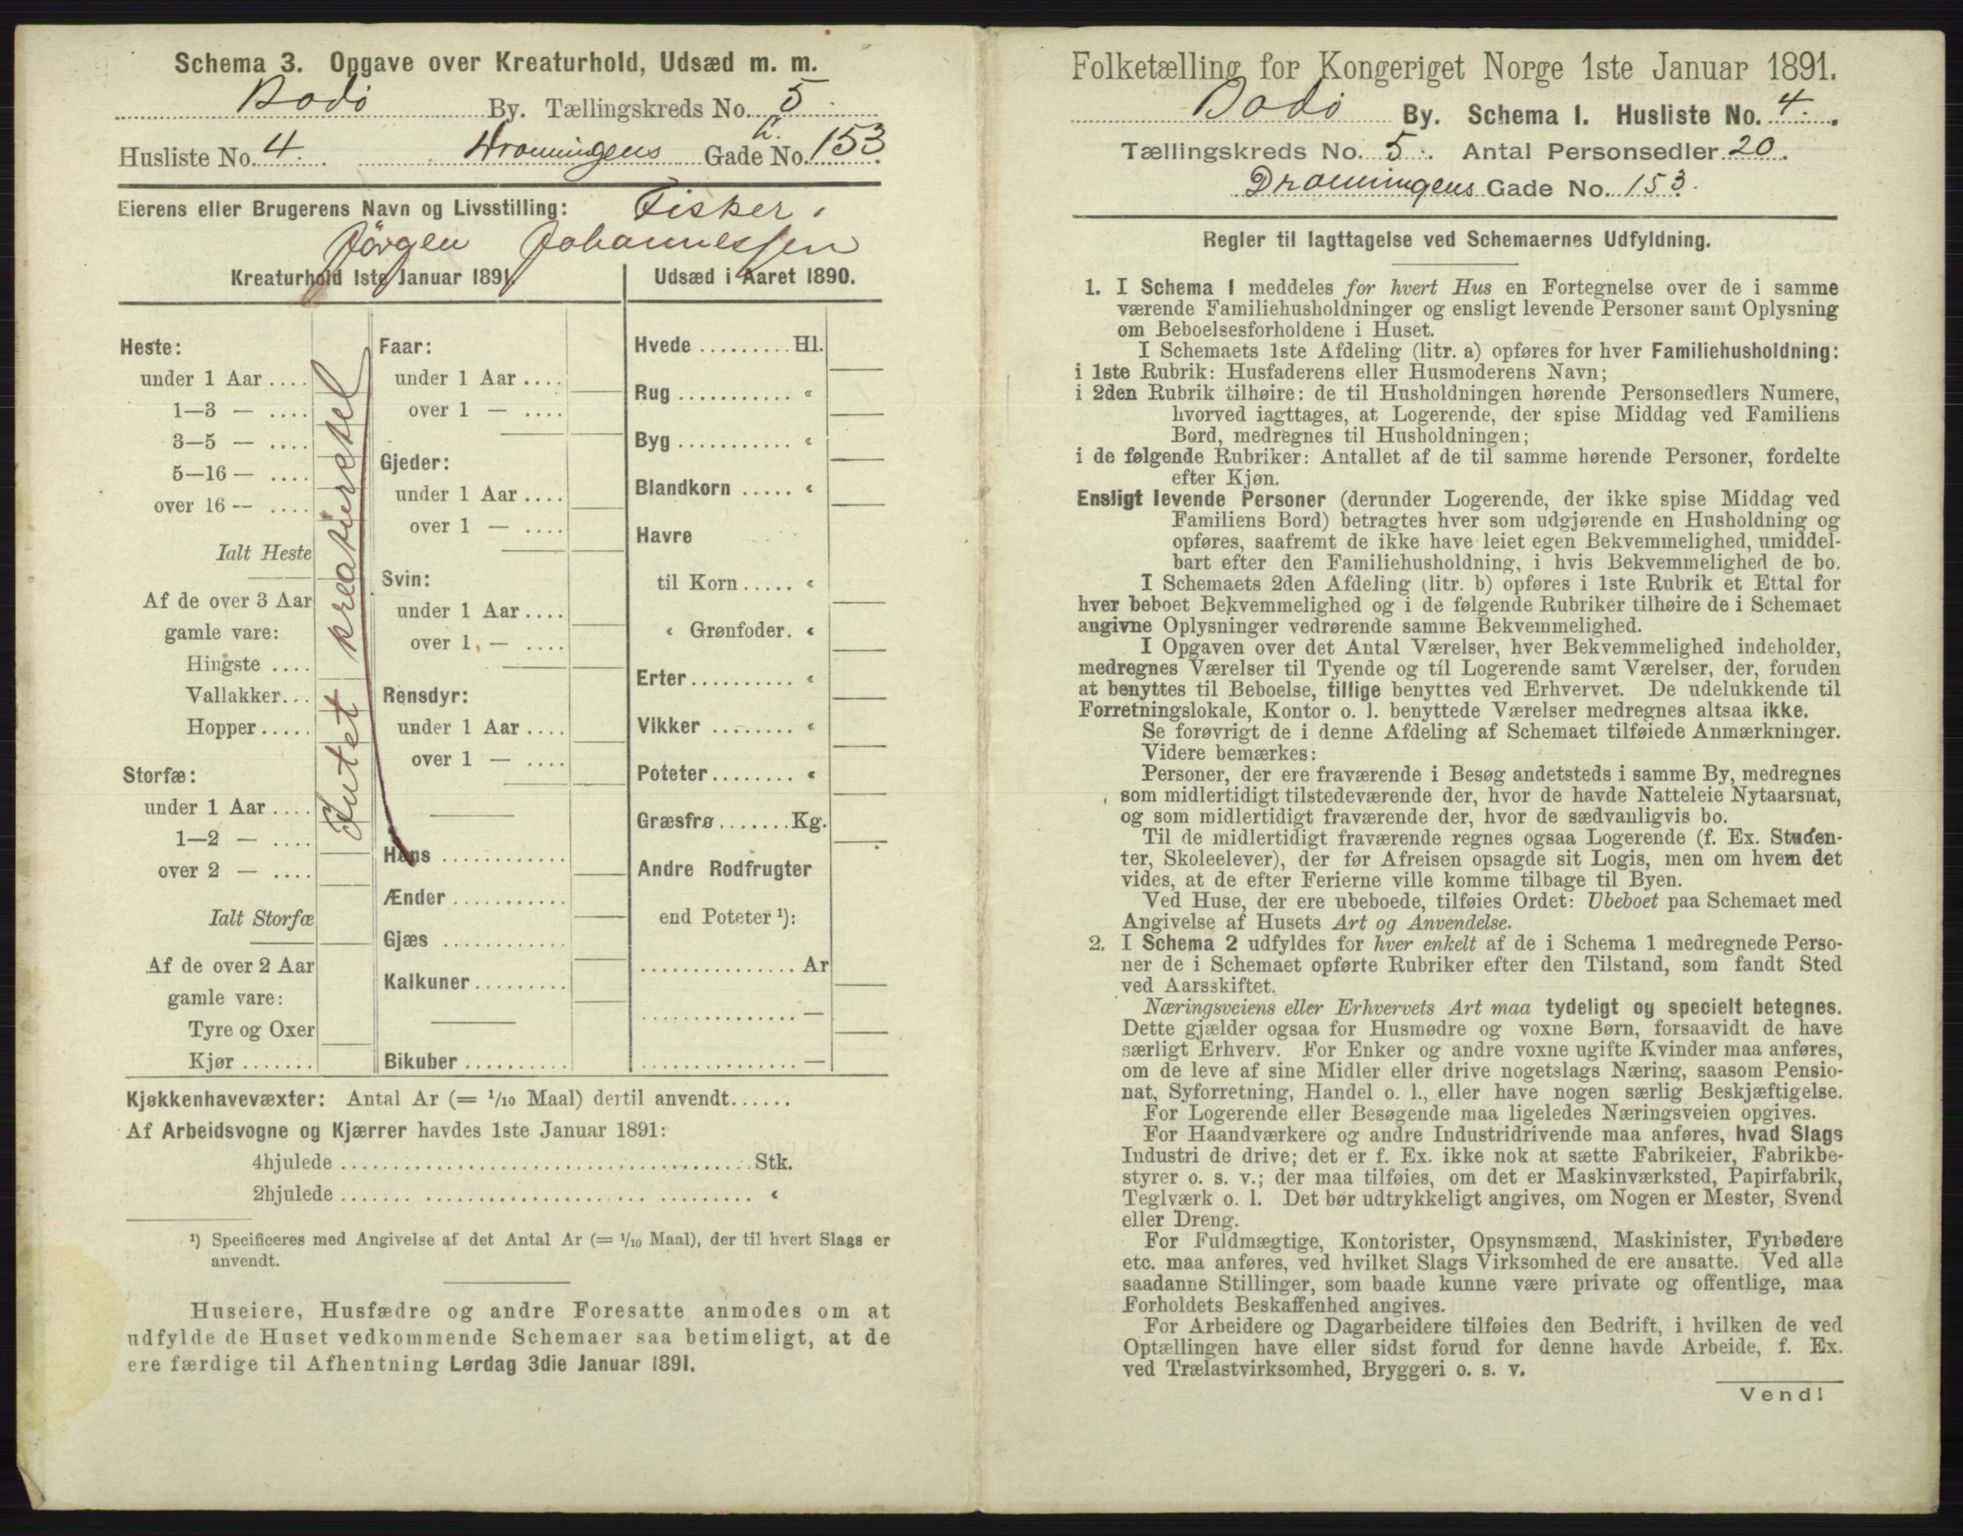 Schema 3. Opgave over Kreaturhold, Udsæd m. m.
Bodö By. Tællingskreds No. 5.
Husliste No. 4. Dronningens Gade No. 153.
Eierens eller Brugerens Navn og Livsstilling: Fisker,
Jörgen Johannessen
Kreaturhold 1ste Januar 1891.
Heste:
under 1 Aar ....
1—3 — ....
3—5 — ....
5—16 — ....
over 16 — ....
Ialt Heste
Af de over 3 Aar
gamle vare:
Hingste ....
Vallakker...
Hopper .....
Storfæ:
under 1 Aar ....
1—2 — ....
over 2 — ....
Ialt Storfæ
Af de over 2 Aar
gamle vare:
Tyre og Oxer
Kjør .......
Intet kreaturehel
Faar:
under 1 Aar ....
over 1 — ....
Gjeder:
under 1 Aar ....
over 1 — ....
Svin:
under 1 Aar ....
over 1 — ....
Rensdyr:
under 1 Aar ....
over 1 — ....
Høns ............
Ænder ...........
Gjæs ............
Kalkuner.........
Bikuber ..........
Udsæd i Aaret 1890.
Hvede ......... Hl.
Rug ........... "
Byg ........... "
Blandkorn ..... "
Havre
til Korn ..... "
" Grønfoder. "
Erter.......... "
Vikker ........ "
Poteter........ "
Græsfrø....... Kg.
Andre Rodfrugter
end Poteter ¹):
................ Ar
................ —
................ —
Kjøkkenhavevæxter: Antal Ar (= 1/10 Maal) dertil anvendt......
Af Arbeidsvogne og Kjærrer havdes 1ste Januar 1891:
4hjulede ........................................ Stk.
2hjulede ........................................ "
¹) Specificeres med Angivelse af det Antal Ar (= 1/10 Maal), der til hvert Slags er
anvendt.
Huseiere, Husfædre og andre Foresatte anmodes om at
udfylde de Huset vedkommende Schemaer saa betimeligt, at de
ere færdige til Afhentning Lørdag 3die Januar 1891.
Folketælling for Kongeriget Norge 1ste Januar 1891.
Bodö By. Schema 1. Husliste No. 4.
Tællingskreds No. 5. Antal Personsedler 20.
Dronningens Gade No. 153.
Regler til Iagttagelse ved Schemaernes Udfyldning.
1. I Schema 1 meddeles for hvert Hus en Fortegnelse over de i samme
værende Familiehusholdninger og ensligt levende Personer samt Oplysning
om Beboelsesforholdene i Huset.
I Schemaets 1ste Afdeling (litr. a) opføres for hver Familiehusholdning:
i 1ste Rubrik: Husfaderens eller Husmoderens Navn;
i 2den Rubrik tilhøire: de til Husholdningen hørende Personsedlers Numere,
hvorved iagttages, at Logerende, der spise Middag ved Familiens
Bord, medregnes til Husholdningen;
i de følgende Rubriker: Antallet af de til samme hørende Personer, fordelte
efter Kjøn.
Ensligt levende Personer (derunder Logerende, der ikke spise Middag ved
Familiens Bord) betragtes hver som udgjørende en Husholdning og
opføres, saafremt de ikke have leiet egen Bekvemmelighed, umiddel-
bart efter den Familiehusholdning, i hvis Bekvemmelighed de bo.
I Schemaets 2den Afdeling (litr. b) opføres i 1ste Rubrik et Ettal for
hver beboet Bekvemmelighed og i de følgende Rubriker tilhøire de i Schemaet
angivne Oplysninger vedrørende samme Bekvemmelighed.
I Opgaven over det Antal Værelser, hver Bekvemmelighed indeholder,
medregnes Værelser til Tyende og til Logerende samt Værelser, der, foruden
at benyttes til Beboelse, tillige benyttes ved Erhvervet. De udelukkende til
Forretningslokale, Kontor o. l. benyttede Værelser medregnes altsaa ikke.
Se forøvrigt de i denne Afdeling af Schemaet tilføiede Anmærkninger.
Videre bemærkes:
Personer, der ere fraværende i Besøg andetsteds i samme By, medregnes
som midlertidigt tilstedeværende der, hvor de havde Natteleie Nytaarsnat,
og som midlertidigt fraværende der, hvor de sædvanligvis bo.
Til de midlertidigt fraværende regnes ogsaa Logerende (f. Ex. Studen-
ter, Skoleelever), der før Afreisen opsagde sit Logis, men om hvem det
vides, at de efter Ferierne ville komme tilbage til Byen.
Ved Huse, der ere ubeboede, tilføies Ordet: Ubeboet paa Schemaet med
Angivelse af Husets Art og Anvendelse.
2. I Schema 2 udfyldes for hver enkelt af de i Schema 1 medregnede Perso-
ner de i Schemaet opførte Rubriker efter den Tilstand, som fandt Sted
ved Aarsskiftet.
Næringsveiens eller Erhvervets Art maa tydeligt og specielt betegnes.
Dette gjælder ogsaa for Husmødre og voxne Børn, forsaavidt de have
særligt Erhverv. For Enker og andre voxne ugifte Kvinder maa anføres,
om de leve af sine Midler eller drive nogetslags Næring, saasom Pensio-
nat, Syforretning, Handel o. l., eller have nogen særlig Beskjæftigelse.
For Logerende eller Besøgende maa ligeledes Næringsveien opgives.
For Haandværkere og andre Industridrivende maa anføres, hvad Slags
Industri de drive; det er f. Ex. ikke nok at sætte Fabrikeier, Fabrikbe-
styrer o. s. v.; der maa tilføies, om det er Maskinværksted, Papirfabrik,
Teglværk o. l. Det bør udtrykkeligt angives, om Nogen er Mester, Svend
eller Dreng.
For Fuldmægtige, Kontorister, Opsynsmænd, Maskinister, Fyrbødere
etc. maa anføres, ved hvilket Slags Virksomhed de ere ansatte. Ved alle
saadanne Stillinger, som baade kunne være private og offentlige, maa
Forholdets Beskaffenhed angives.
For Arbeidere og Dagarbeidere tilføies den Bedrift, i hvilken de ved
Optællingen have eller sidst forud for denne havde Arbeide, f. Ex.
ved Trælastvirksomhed, Bryggeri o. s. v.
Vend!